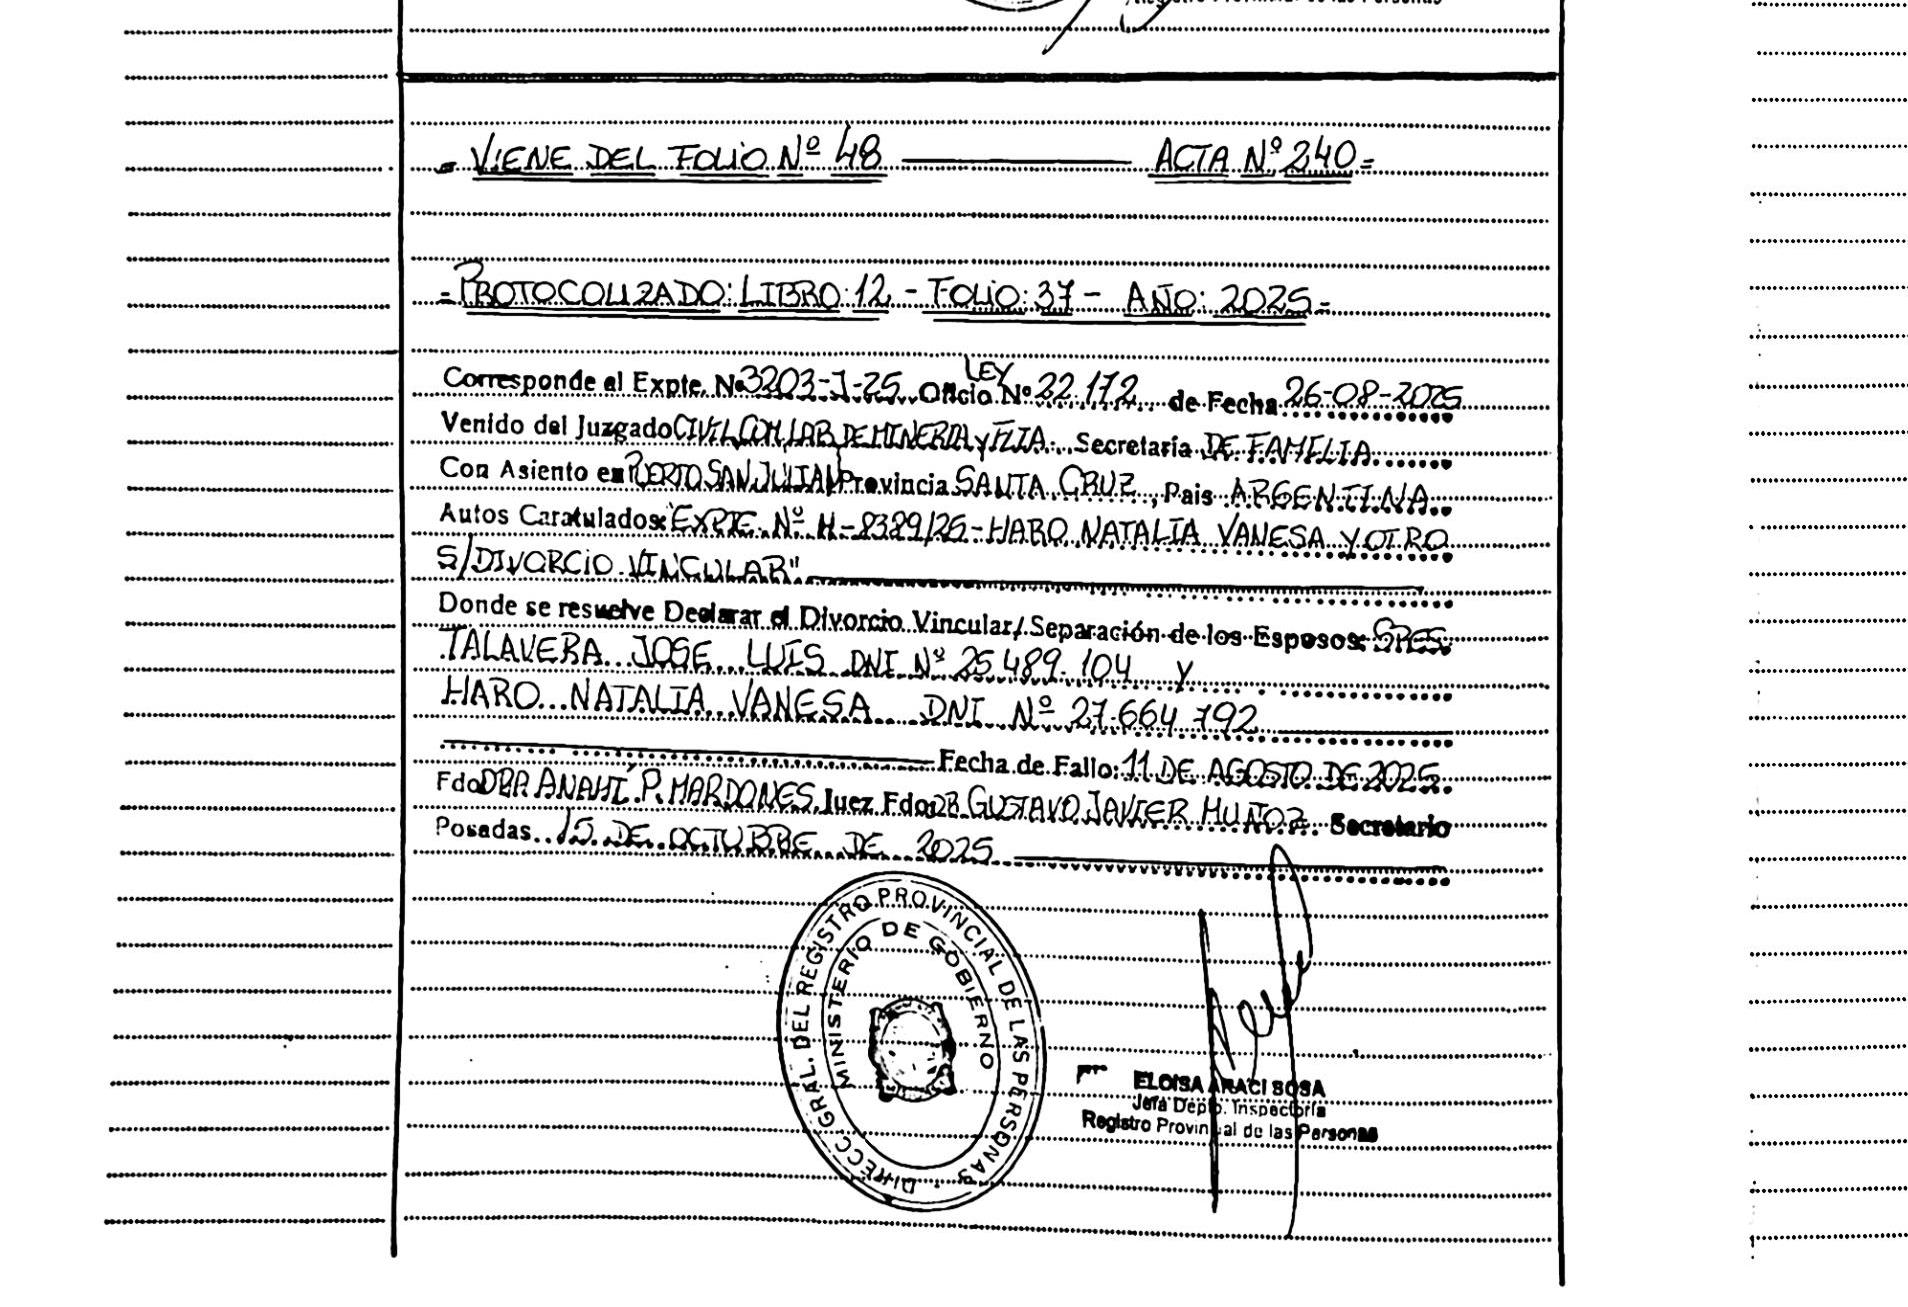 Registro Provincial de las Personas
= VIENE DEL FOLIO Nº 48 ——— ACTA Nº 240 =
= PROTOCOLIZADO: LIBRO: 12 - FOLIO: 37 - AÑO: 2025 =
LEY
Corresponde al Expte. Nº 3203-J-25 Oficio Nº 22.172 de Fecha 26-08-2025
Venido del Juzgado CIVIL, COM, LAB, DE MINERIA y FLIA. Secretaría DE FAMILIA
Con Asiento en PUERTO SAN JULIAN Provincia SANTA CRUZ, Pais ARGENTINA
Autos Caratulados: "EXPTE. Nº H-8389/25 - HARO NATALIA VANESA Y OTRO
S/DIVORCIO VINCULAR"
Donde se resuelve Declarar el Divorcio Vincular/Separación de los Esposos: SRES.
TALAVERA JOSE LUIS DNI Nº 25.489.104 y
HARO NATALIA VANESA DNI Nº 27.664.792
Fecha de Fallo: 11 DE AGOSTO DE 2025
Fdo DRA. ANAHÍ P. MARDONES Juez Fdo: DR. GUSTAVO JAVIER MUÑOZ Secretario
Posadas 15 DE OCTUBRE DE 2025
DIRECC. GRAL. DEL REGISTRO PROVINCIAL DE LAS PERSONAS
MINISTERIO DE GOBIERNO
ELOISA ARACI SOSA
Jefa Depto. Inspectoría
Registro Provincial de las Personas